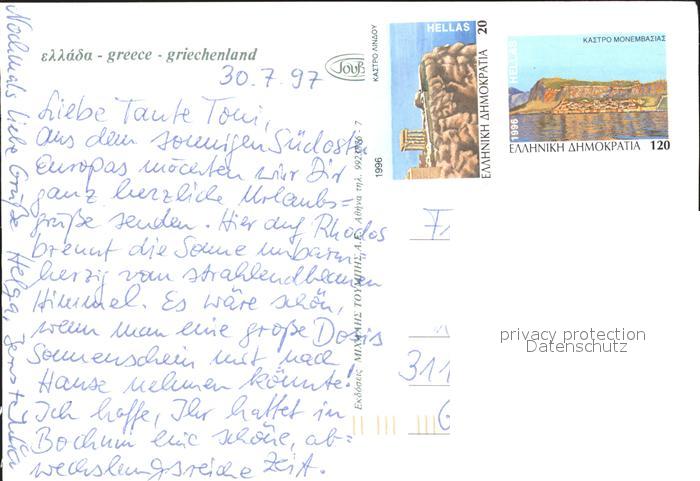 ελλάδα - greece - griechenland
Τουμπ
30.7.97
Liebe Tante Toni,
aus dem sonnigen Südosten
Europas möchten wir Dir
ganz herzliche Urlaubs=
grüße senden. Hier auf Rhodos
brennt die Sonne unbarm-
herzig vom strahlendblauen
Himmel. Es wäre schön,
wenn man eine große Dosis
Sonnenschein mit nach
Hause nehmen könnte!
Ich hoffe, Ihr hattet in
Bochum eine schöne, ab=
wechslungsreiche Zeit.
Nochmals liebe Grüße Helga,
Εκδόσεις ΜΙΧΑΛΗΣ ΤΟΥΜΠΗΣ Α.Ε. Αθήνα τηλ.
ΚΑΣΤΡΟ ΛΙΝΔΟΥ
1996
HELLAS
20
ΕΛΛΗΝΙΚΗ ΔΗΜΟΚΡΑΤΙΑ
ΚΑΣΤΡΟ ΜΟΝΕΜΒΑΣΙΑΣ
HELLAS
1996
ΕΛΛΗΝΙΚΗ ΔΗΜΟΚΡΑΤΙΑ 120
311
privacy protection
Datenschutz